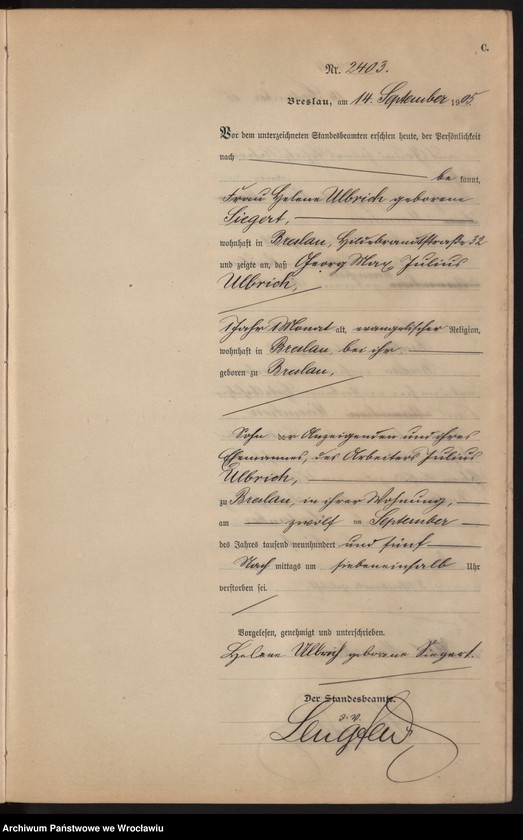 C.
Nr. 2403.
Breslau, am 14. September 1905
Vor dem unterzeichneten Standesbeamten erschien heute, der Persönlichkeit
nach
be kannt,
Frau Helene Ulbrich geborene
Siegert,
wohnhaft in Breslau, Hildebrandtstraße 32
und zeigte an, daß Georg Max Julius
Ulbrich,
1 Jahr 1 Monat alt, evangelischer Religion,
wohnhaft in Breslau, bei ihr
geboren zu Breslau,
Sohn der Anzeigenden und ihres
Ehemannes, des Arbeiters Julius
Ulbrich,
zu Breslau, in ihrer Wohnung,
am zwölf ten September
des Jahres tausend neunhundert und fünf
Nach mittags um siebeneinhalb Uhr
verstorben sei.
Vorgelesen, genehmigt und unterschrieben.
Helene Ulbrich geborene Siegert.
Der Standesbeamte.
Archiwum Państwowe we Wrocławiu